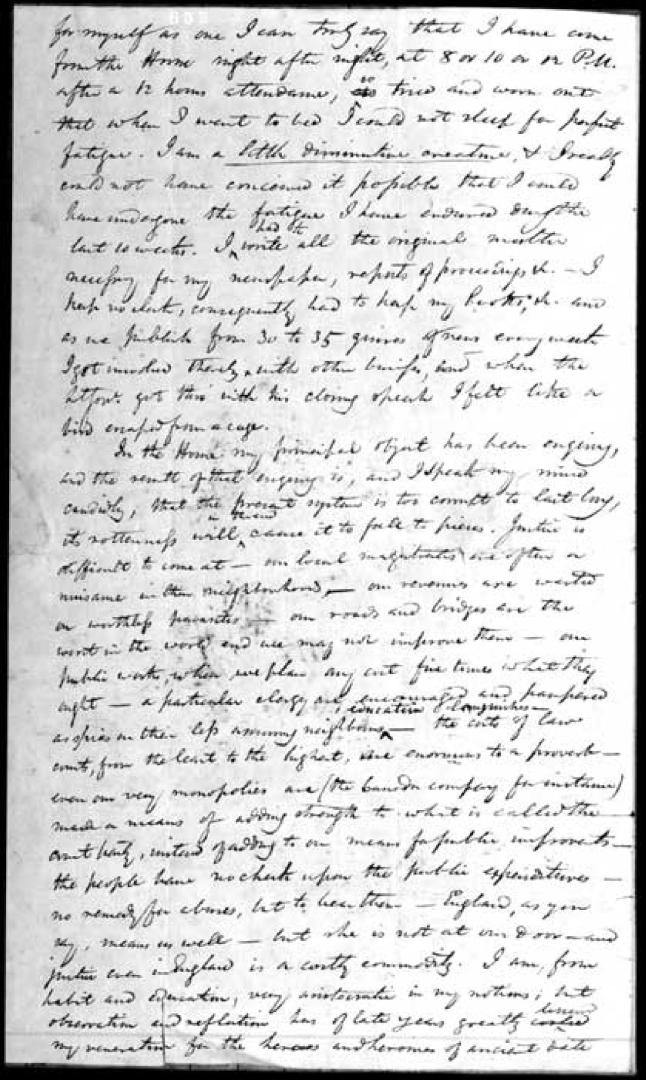 for myself as one I can truly say that I have come
from the House night after night, at 8 or 10 or 12 P.M.
after a 12 hours attendance, so tired and worn out
that when I went to bed I could not sleep for perfect
fatigue. I am a little diminutive creature, & I really
could not have conceived it possible that I could
have undergone the fatigue I have endured during the
last 10 weeks. I had to write all the original matter
necessary for my newspaper, reports of proceedings &c. — I
keep no clerk, consequently had to keep my books, &c. and
as we publish from 30 to 35 quires of news every week
I got involved thereby with other business, and when the
got thro' with his closing speech I felt like a
bird escaped from a cage.
In the House my principal object has been enquiry,
and the result of that enquiry is, and I speak my mind
candidly, that the present system is too corrupt to last long,
its rottenness will cause it to fall to pieces. Justice is
difficult to come at — our local magistrates are often a
nuisance in their neighbourhood, — our revenues are wasted
on worthless parasites — our roads and bridges are the
worst in the world and we may not improve them — our
public works, when we plan any cost five times what they
ought — a particular clergy are encouraged and pampered
as spies on their less assuming neighbours — education languishes — the costs of law
courts, from the least to the highest, are enormous to a proverb —
even our very monopolies are (the company for instance)
made a means of adding strength to what is called the
court party, instead of adding to our means for public improvets —
the people have no check upon the public expenditures —
no remedy for abuses, but to bear them — England, as you
say, means us well — but she is not at our door — and
justice even in England is a costly commodity. I am, from
habit and education, very aristocratic in my notions; but
observation and reflection has of late years greatly lessened
my veneration for the heroes and heroines of ancient date